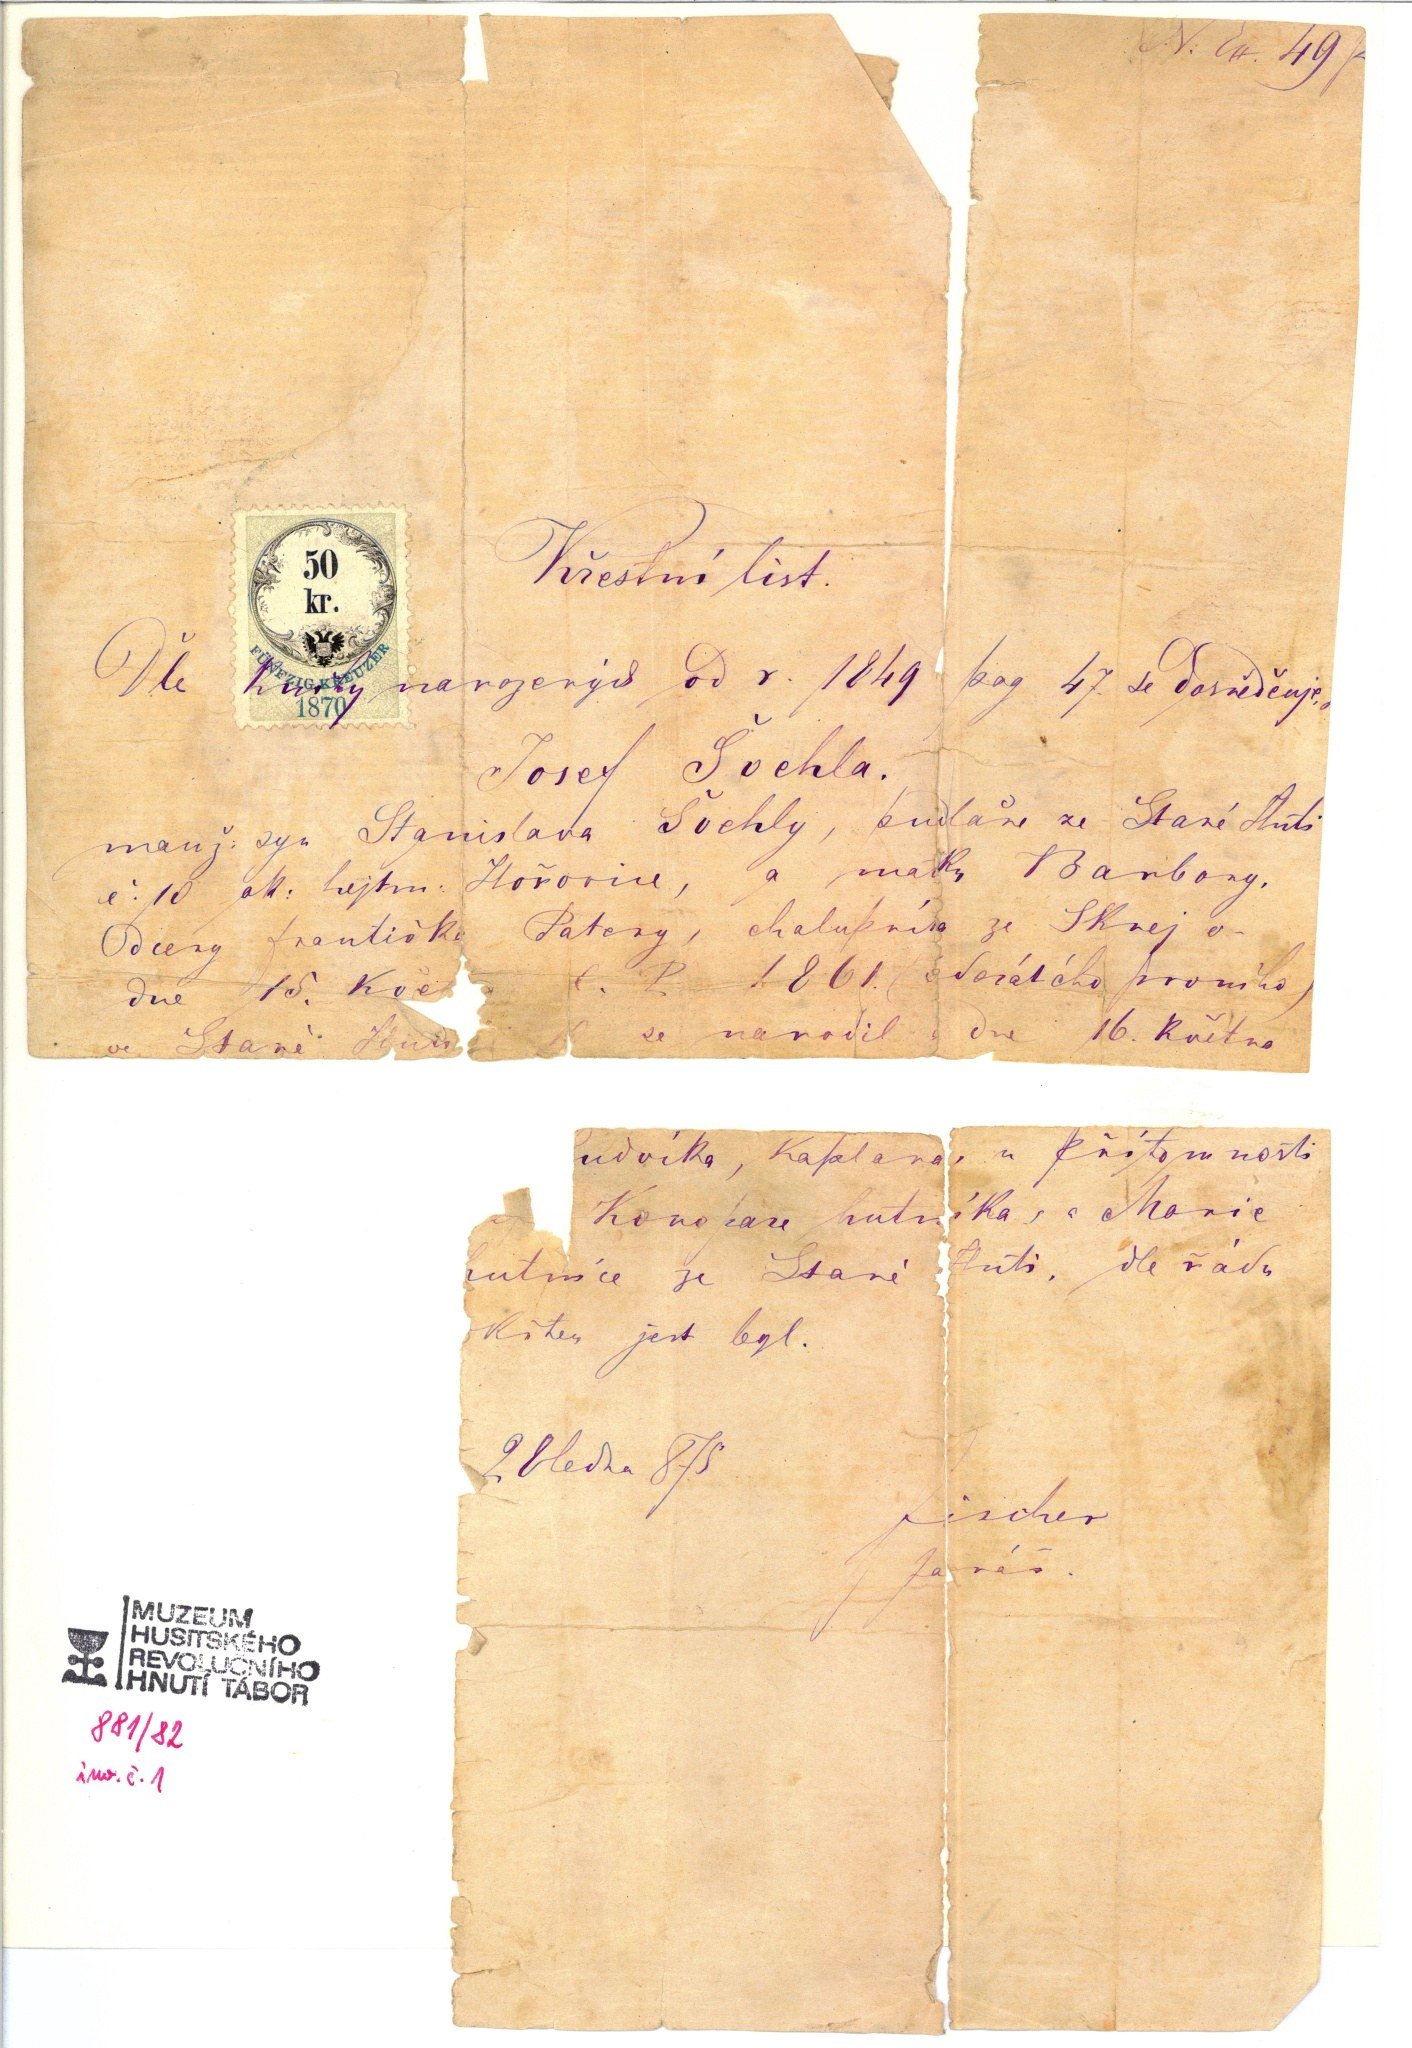 N. Ex. 49
50
kr.
FÜNFZIG KREUZER
1870
Křestní list.
Dle knihy narozených od r. 1849 pag 47. se dosvědčuje,
Josef Švehla.
manž: syn Stanislava Švehly, pudláře ze Staré Huti
č: 10 ok: hejtm: Hořovice, a matky Barbory,
Dcery Františka Patery, chalupníka ze Skrej o-
dne 15. Kvě 1861. šedesátého prvního)
ve Staré Huti se narodil a dne 16. Května
udvíka, Kaplana, u přítomnosti
Konopase hutníka, a Marie
hutnice ze Staré Huti, dle řádu
křtěn jest byl.
2 ledna 875
Fischer
farář.
MUZEUM
HUSITSKÉHO
REVOLUČNÍHO
HNUTÍ TÁBOR
881/82
inv. č. 1